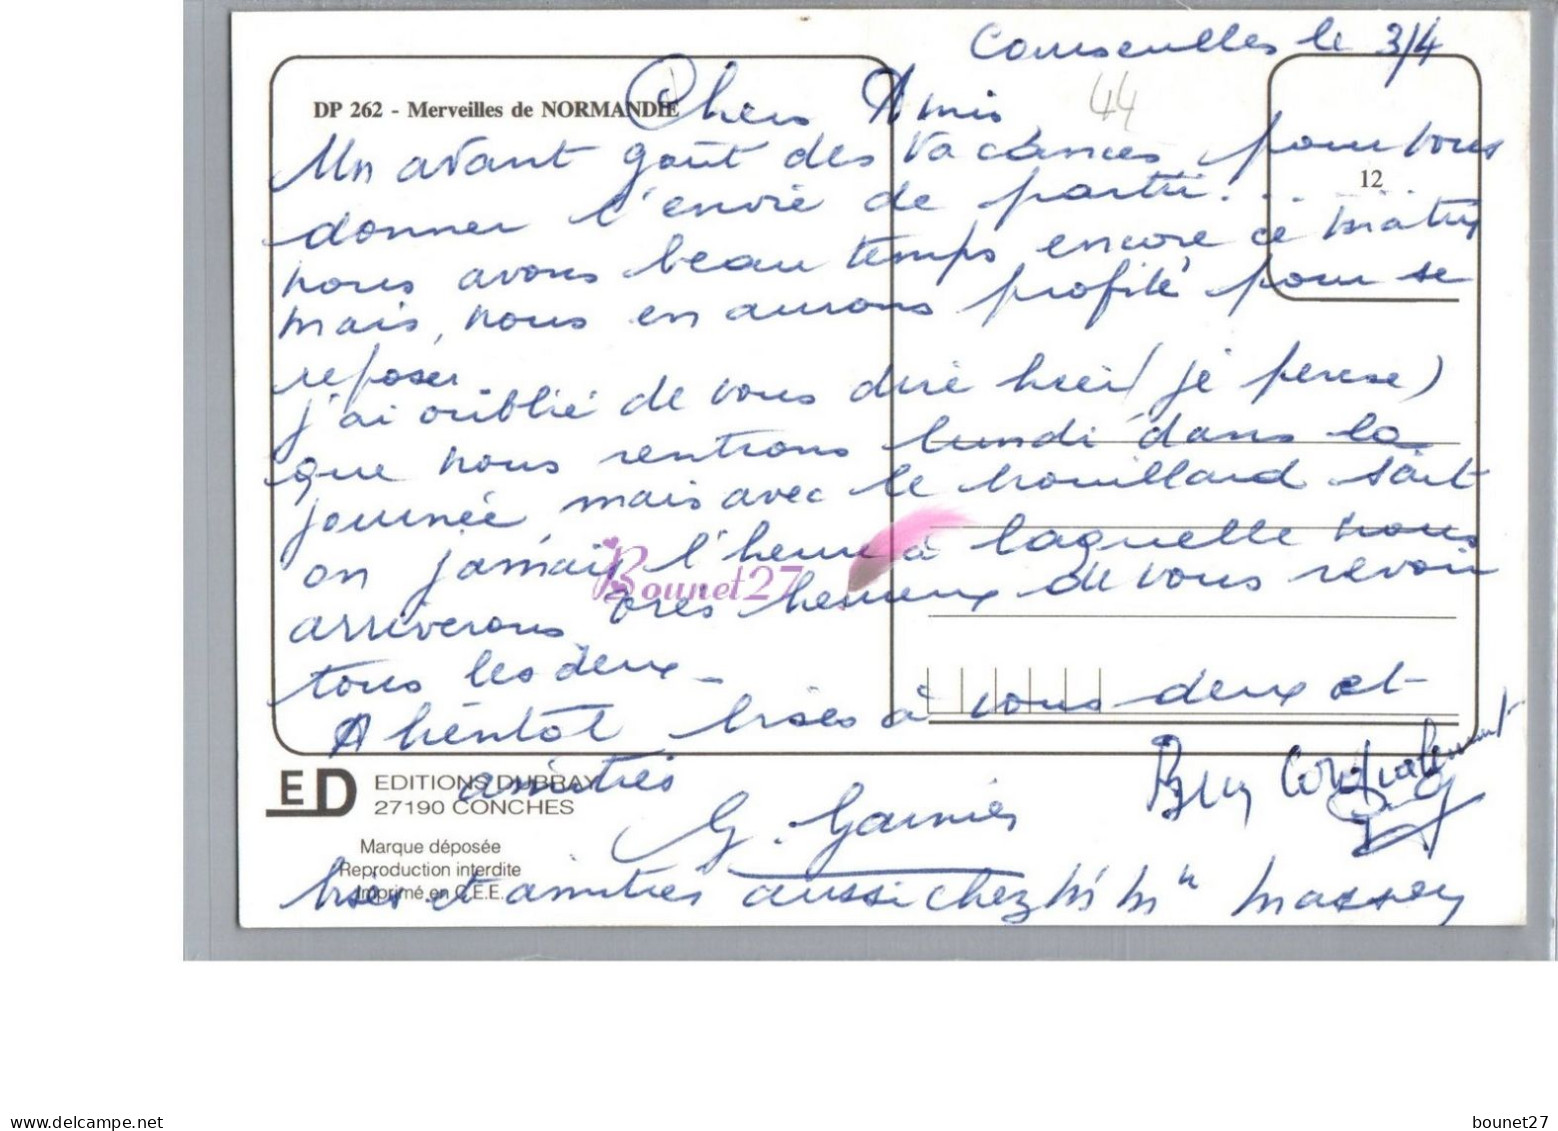 Courseulles le 3/4
44
DP 262 - Merveilles de NORMANDIE
Chers Amis
Un avant goût des vacances pour vous
12
donner l'envie de partir...
nous avons beau temps encore ce matin
mais, nous en aurons profité pour se
reposer.
j'ai oublié de vous dire hier (je pense)
que nous rentrons lundi dans la
journée, mais avec le brouillard sait
on jamais l'heure à laquelle nous
Bounet27
arriverons, très heureux de vous revoir
tous les deux -
A bientôt bises à vous deux et
amitiés
Bien Cordialement
ED EDITIONS DUBRAY
27190 CONCHES
G. Garnier
Marque déposée
Reproduction interdite
Imprimé en C.E.E.
bises et amitiés aussi chez Mr Mme Massey
delcampe.net
bounet27